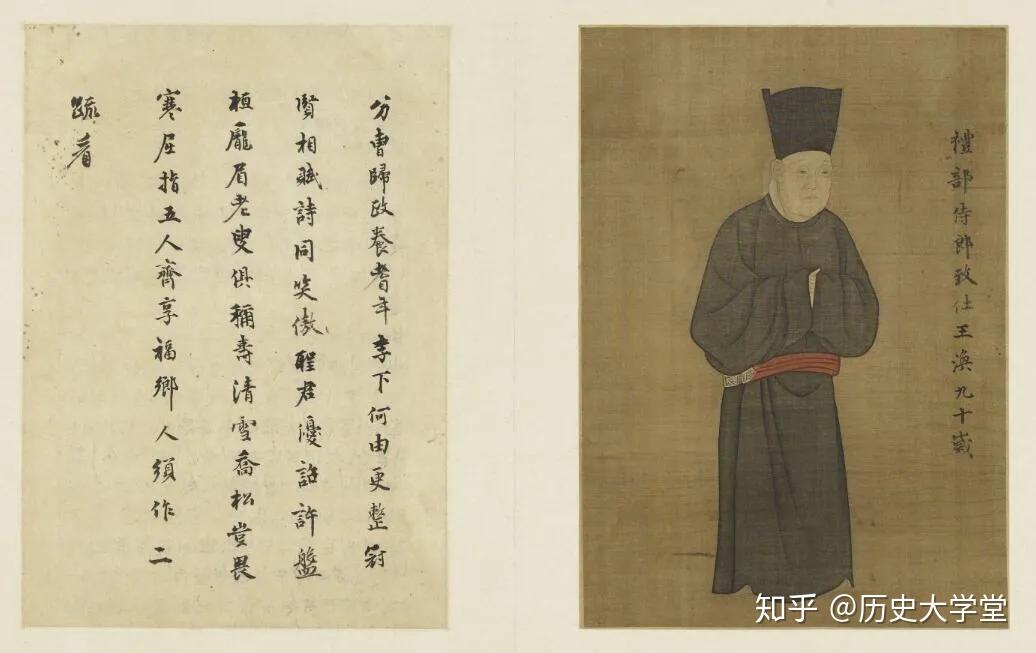 禮部侍郎致仕王渙九十歲
分曹歸政養耆年李下何由更整冠
賢相賦詩同笑傲聖君優詔許盤
桓龐眉老叟俱稱壽清雪喬松豈畏
寒屈指五人齊享福鄉人須作二
疏看
知乎 @历史大学堂